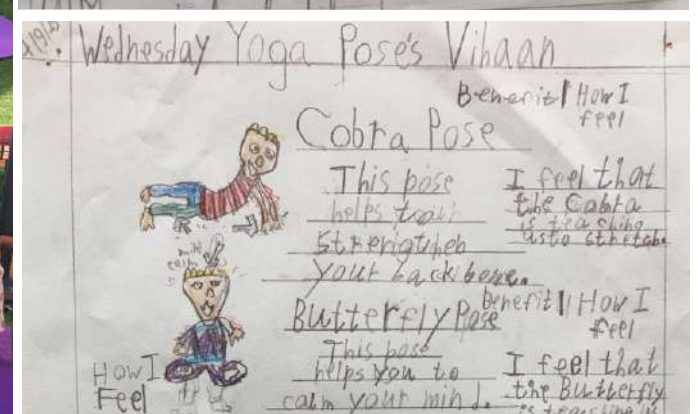 Wednesday Yoga Pose's Vihaan
Benenit How I
feel
Cobra Pose
This pose
helps
your back bone.
I feel that
the Cobra
is teaching
us to stretch.
calm
Butterfly Pose
benefit How I
feel
This pose
helps you to
calm your mind.
I feel that
the Butterfly
is teaching us
How I
Feel